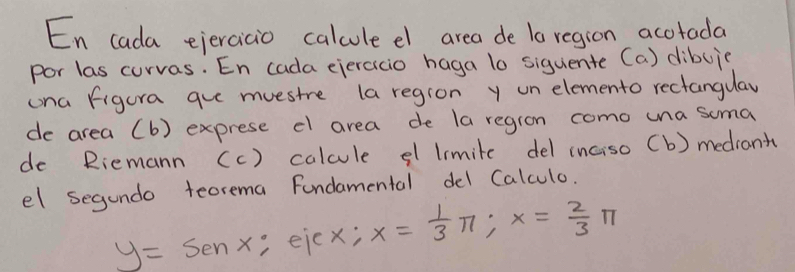 En cada ejercicio calcule el area de la region acotada
por las curvas. En cada ejercicio haga lo siguiente (a) dibuje
una figura que muestre la region y un elemento rectangular
de area (b) exprese el area de la region como una suma
de Riemann (c) calcule el limite del inciso (b) mediante
el segundo teorema Fundamental del Calculo.
y = Sen x; eje x; x = 1/3 π; x = 2/3 π